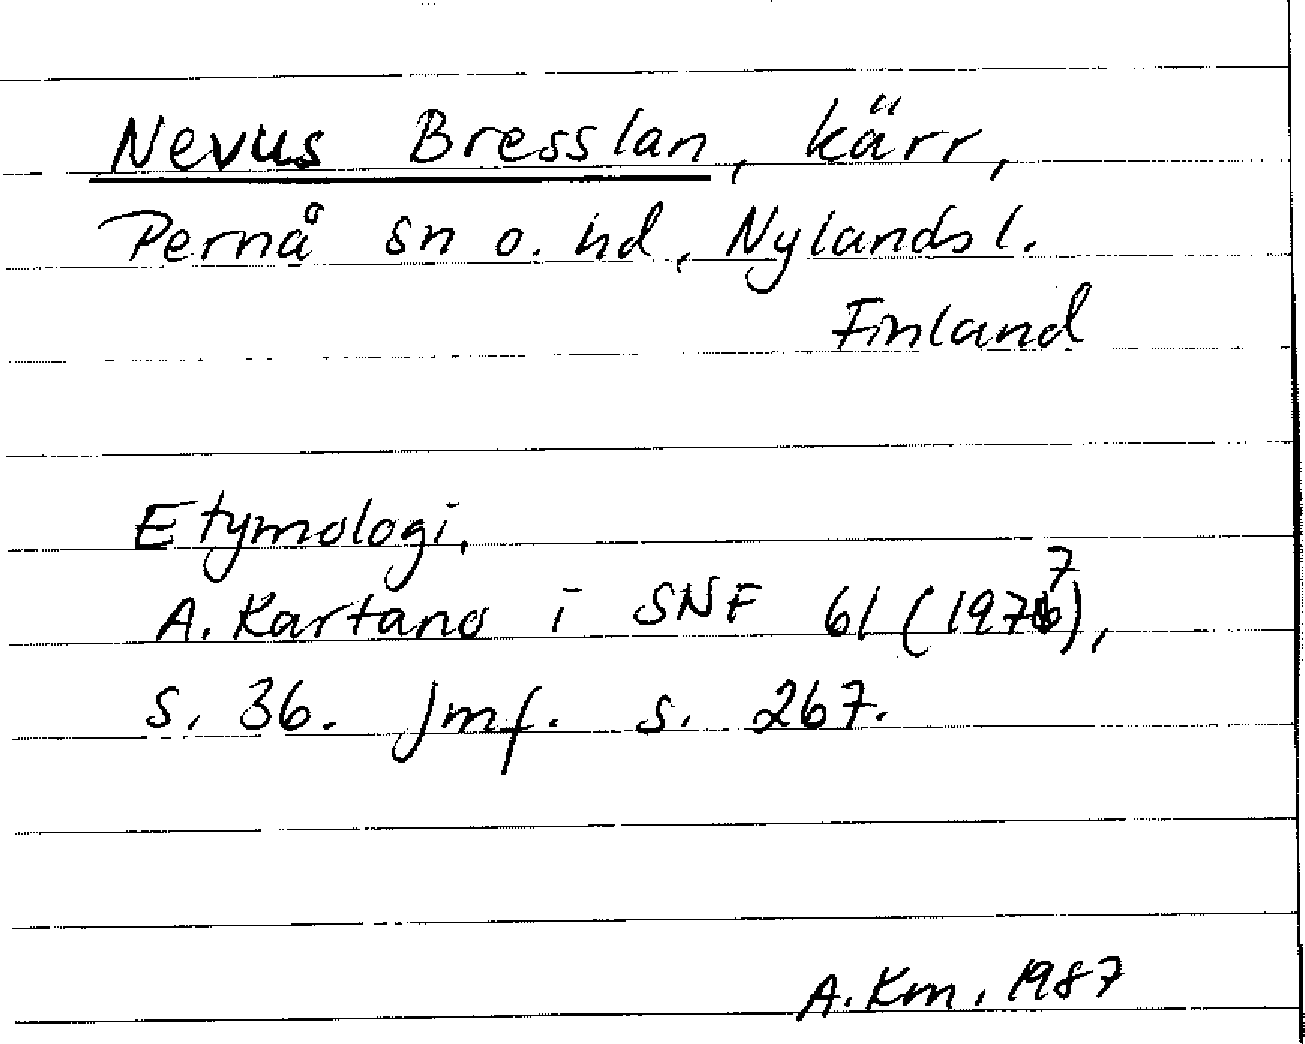 Nevus Bresslan, kärr,
Pernå sn o. hd, Nylands l.
Finland
Etymologi,
A. Kartano i SNF 61 (1977),
s. 36. Jmf. s. 267.
A. Km. 1987